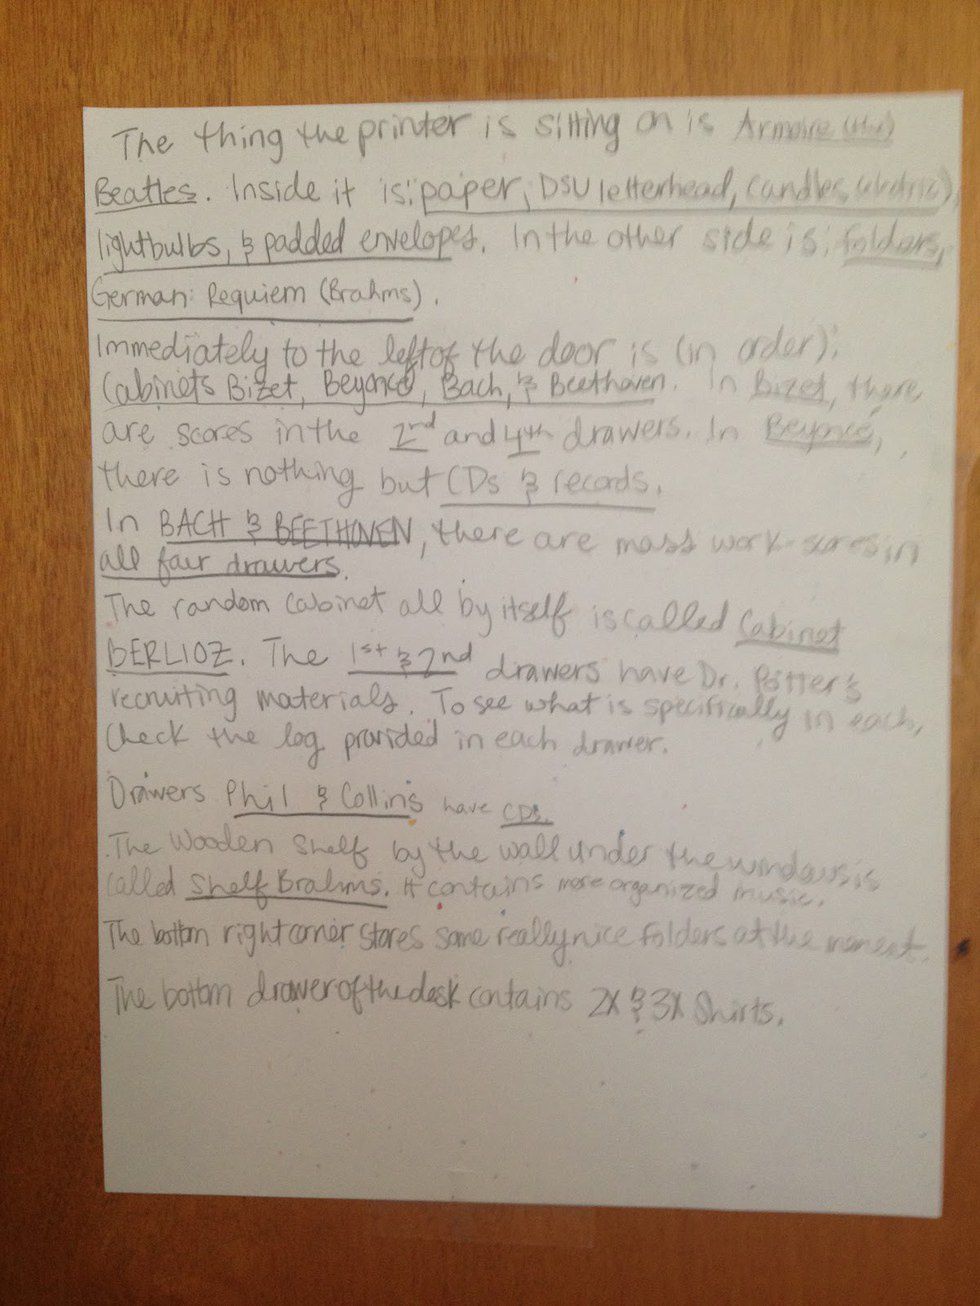 The thing the printer is sitting on is Armoire (the)
Beatles. Inside it is: paper, DSU letterhead, candles (electric),
lightbulbs, & padded envelopes. In the other side is: folders,
German Requiem (Brahms).
Immediately to the left of the door is (in order):
Cabinets Bizet, Beyoncé, Bach, & Beethoven. In Bizet, there
are scores in the 2nd and 4th drawers. In Beyoncé,
there is nothing but CDs & records.
In BACH & BEETHOVEN, there are mass work scores in
all four drawers.
The random cabinet all by itself is called Cabinet
BERLIOZ. The 1st & 2nd drawers have Dr. Potter's
recruiting materials. To see what is specifically in each,
check the log provided in each drawer.
Drawers Phil & Collins have CDs.
The wooden shelf by the wall under the windows is
called Shelf Brahms. It contains more organized music.
The bottom right corner stores some really nice folders at the moment.
The bottom drawer of the desk contains 2X & 3X shirts.